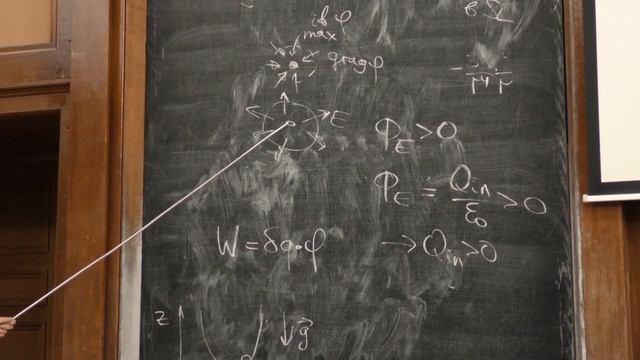 if φ
max
grad φ
E
Φ_E > 0
Φ_E = Q_in / ε_0 > 0
W = δq·φ
→ Q_in > 0
z
↓ g⃗